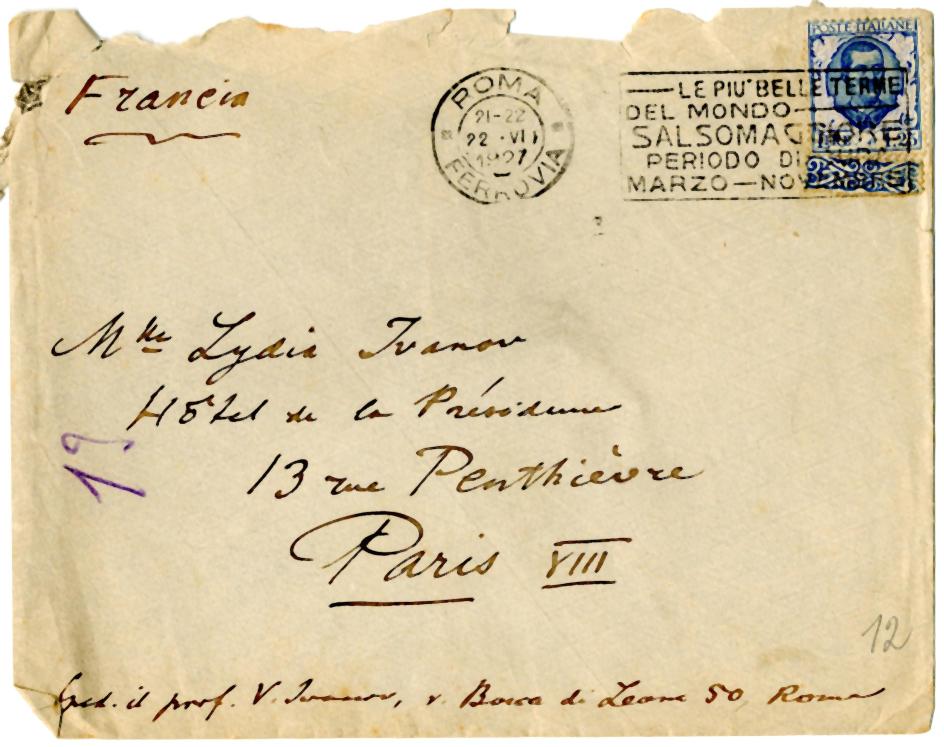 Francia
ROMA
21-22
22 · VII
1927
FERROVIA
LE PIU' BELLE TERME
DEL MONDO
SALSOMAGGIORE
PERIODO DI
MARZO — NOV
POSTE ITALIANE
1,25
Mlle Lydia Ivanov
Hôtel de la Présidence
13 rue Penthièvre
Paris VIII
19
12
Sped. il prof. V. Ivanov, v. Bocca di Leone 50, Roma